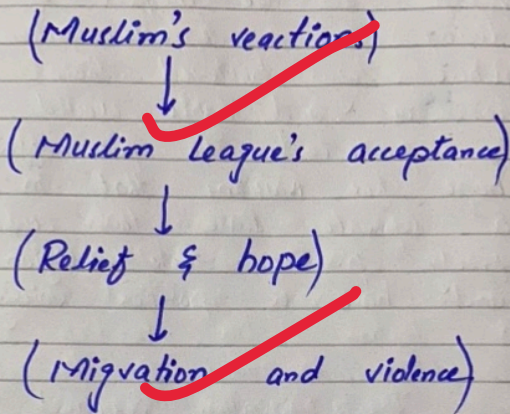 (Muslim's reactions)
(Muslim League's acceptance)
(Relief & hope)
(Migration and violence)